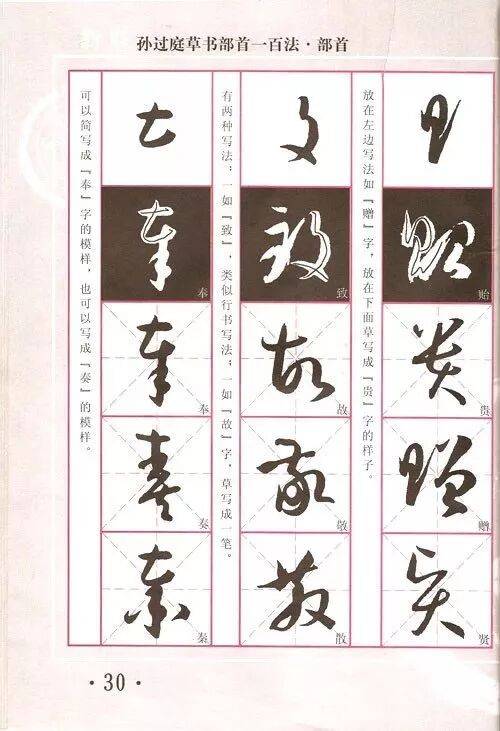 孙过庭草书部首一百法·部首
放在左边写法如『赠』字，放在下面草写成『贵』字的样子。
贻
贵
赠
贤
有两种写法；一如『致』，类似行书写法；一如『故』字，草写成一笔。
致
故
敬
散
可以简写成『奉』字的模样，也可以写成『奏』的模样。
奉
奉
奏
秦
·30·